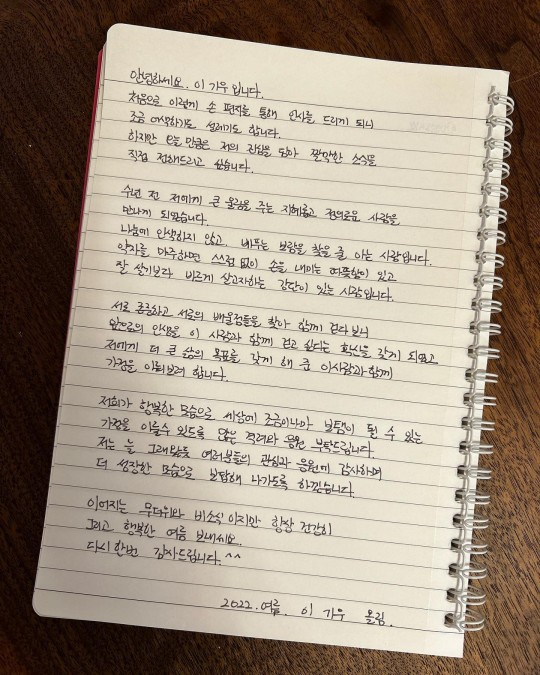 안녕하세요. 이 가우 입니다.
처음으로 이렇게 손 편지를 통해 인사를 드리게 되니
조금 어색하기도 설레기도 합니다.
하지만 오늘 만큼은 저의 진심을 담아 짤막한 소식을
직접 전해드리고 싶습니다.
수년 전 저에게 큰 울림을 주는 지혜롭고 정의로운 사람을
만나게 되었습니다.
나눔에 인색하지 않고. 베푸는 보람을 찾을 줄 아는 사람입니다.
약자를 마주하면 스스럼 없이 손을 내미는 따뜻함이 있고
잘 살기보다 바르게 살고자하는 강단이 있는 사람입니다.
서로 존중하고 서로의 배울점들을 찾아 함께 걷다보니
앞으로의 인생을 이 사람과 함께 걷고 싶다는 확신을 갖게 되었고
저에게 더 큰 삶의 목표를 갖게 해 준 이사람과 함께
가정을 이뤄보려 합니다.
저희가 행복한 모습으로 세상에 조금이나마 보탬이 될 수 있는
가정을 이룰수 있도록 많은 격려와 응원 부탁드립니다.
저는 늘 그래왔듯 여러분들의 관심과 응원에 감사하며
더 성장한 모습으로 보답해 나가도록 하겠습니다.
이어지는 무더위와 비소식 이지만 항상 건강히
그리고 행복한 여름 보내세요.
다시 한번 감사드립니다. ^^
2022. 여름. 이 가우 올림.